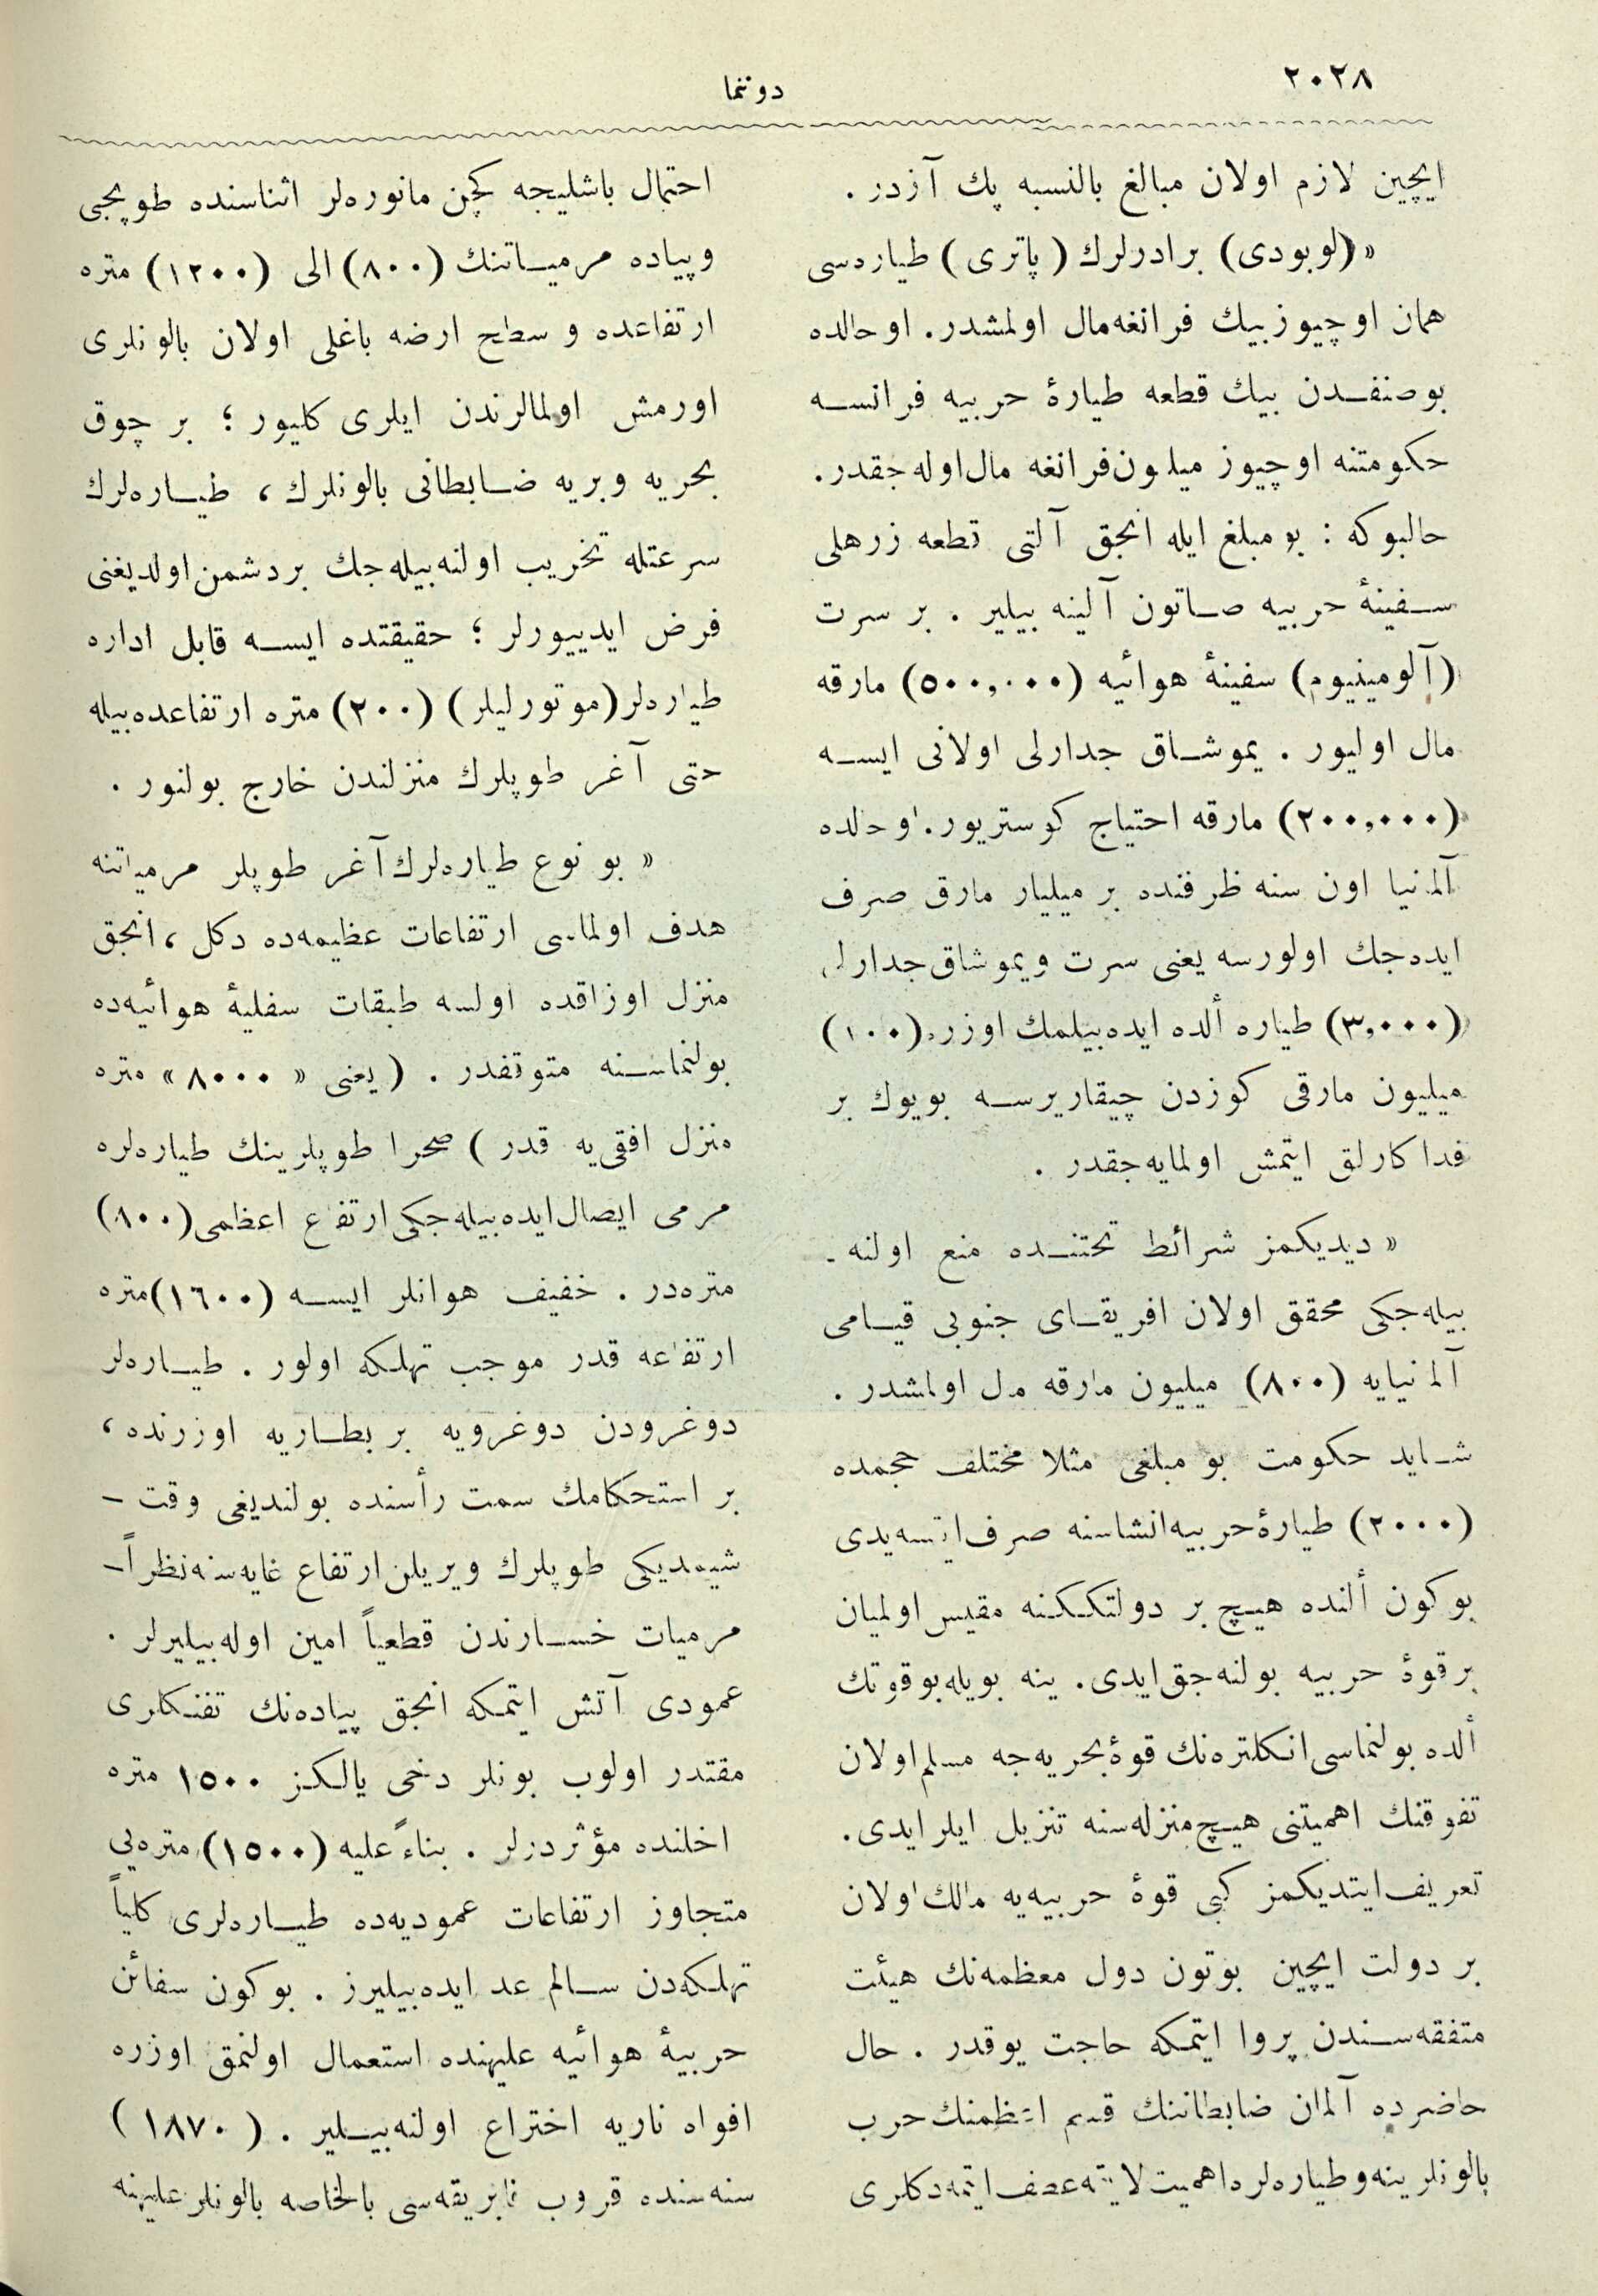 ٢٠٢٨
دوننما
ایچین لازم اولان مبالغ بالنسبه پك آزدر .
« (لوبودی) برادرلرك (پاتری) طیاره‌سی
همان اوچیوزبیك فرانغه‌مال اولمشدر. اوحالده
بوصنفـدن بیك قطعه طیارهٔ حربیه فرانسـه
حكومتنه اوچیوز میلیون‌فرانغه مال‌اوله‌جقدر.
حالبوكه : بو مبلغ ایله انجق آلتی قطعه زرهلی
سـفینهٔ حربیه صـاتون آلینه بیلیر . بر سرت
(آلومینیوم) سفینهٔ هوائیه (٥٠٠,٠٠٠) مارقه
مال اولیور . یموشـاق جدارلی اولانی ایسـه
(٢٠٠,٠٠٠) مارقه احتیاج كوستریور. اوحالده
آلمانیا اون سنه ظرفنده بر میلیار مارق صرف
ایده‌جك اولورسه یعنی سرت ویموشاق‌جدارلی
(٣,٠٠٠) طیاره ألده ایده‌بیلمك اوزره (١٠٠)
میلیون مارقی كوزدن چیقاریرسـه بویوك بر
فداكارلق ایتمش اولمایه‌جقدر .
« دیدیكمز شرائط تحتنـده منع اولنه ـ
بیله‌جكی محقق اولان افریقـای جنوبی قیـامی
آلمانیایه (٨٠٠) میلیون مارقه مال اولمشدر .
شـاید حكومت بو مبلغی مثلا مختلف حجمده
(٢٠٠٠) طیارهٔ‌حربیه‌انشاسنه صرف‌ایتسه‌یدی
بوكون ألنده هیـچ بر دولتككنه مقیس اولمیان
برقوهٔ حربیه بولنه‌جق‌ایدی. ینه بویله‌بوقوتك
ألده بولنماسی‌انكلتره‌نك قوهٔ‌بحریه‌جه مسلم‌اولان
تفوقنك اهمیتنی هیـچ‌منزله‌سنه تنزیل ایلرایدی.
تعریف‌ایتدیكمز كبی قوهٔ حربیه‌یه مالك‌اولان
بر دولت ایچین بوتون دول معظمه‌نك هیئت
متفقه‌سـندن پروا ایتمكه حاجت یوقدر . حال
حاضرده آلمان ضابطاننك قسم اعظمنك‌حرب
بالونلرینه‌وطیاره‌لره‌اهمیت‌لایقه‌عطف‌ایتمه‌دكلری
احتمال باشلیجه كچن مانوره‌لر اثناسنده طوپجی
وپیاده مرمیـاتنك (٨٠٠) الی (١٢٠٠) متره
ارتفاعده و سطح ارضه باغلی اولان بالونلری
اورمش اولمالرندن ایلری كلیور ؛ بر چوق
بحریه وبریه ضـابطانی بالونلرك ، طیـاره‌لرك
سرعتله تخریب اولنه‌بیله‌جك بردشمن‌اولدیغنی
فرض ایدییورلر ؛ حقیقتده ایسـه قابل اداره
طیاره‌لر(موتورلیلر) (٢٠٠) متره ارتفاعده‌بیله
حتی آغر طوپلرك منزلندن خارج بولنور .
« بو نوع طیاره‌لرك‌آغر طوپلر مرمیاتنه
هدف اولماسی ارتفاعات عظیمه‌ده دكل ، انجق
منزل اوزاقده اولسه طبقات سفلیهٔ هوائیه‌ده
بولنماسـنه متوقفدر . (یعنی « ٨٠٠٠ » متره
منزل افقی‌یه قدر ) صحرا طوپلرینك طیاره‌لره
مرمی ایصال‌ایده‌بیله‌جكی ارتفاع اعظمی(٨٠٠)
متره‌در . خفیف هوانلر ایسـه (١٦٠٠)متره
ارتفاعه قدر موجب تهلكه اولور . طیـاره‌لر
دوغرودن دوغرویه بر بطـاریه اوزرنده ،
بر استحكامك سمت رأسنده بولندیغی وقت ـ
شیمدیكی طوپلرك ویریلن‌ارتفاع غایه‌سنه‌نظراً ـ
مرمیات خسـارندن قطعیاً امین اوله‌بیلیرلر .
عمودی آتش ایتمكه انجق پیاده‌نك تفنـكلری
مقتدر اولوب بونلر دخی یالكز ١٥٠٠ متره
اخلنده مؤثردرلر . بناءً علیه (١٥٠٠) متره‌یی
متجاوز ارتفاعات عمودیه‌ده طیـاره‌لری كلیاً
تهلكه‌دن سـالم عد ایده‌بیلیرز . بوكون سفائن
حربیهٔ هوائیه علیهنده استعمال اولنمق اوزره
افواه ناریه اختراع اولنه‌بیـلیر . (١٨٧٠)
سنه‌سنده قروپ فابریقه‌سی بالخاصه بالونلر علیهنه